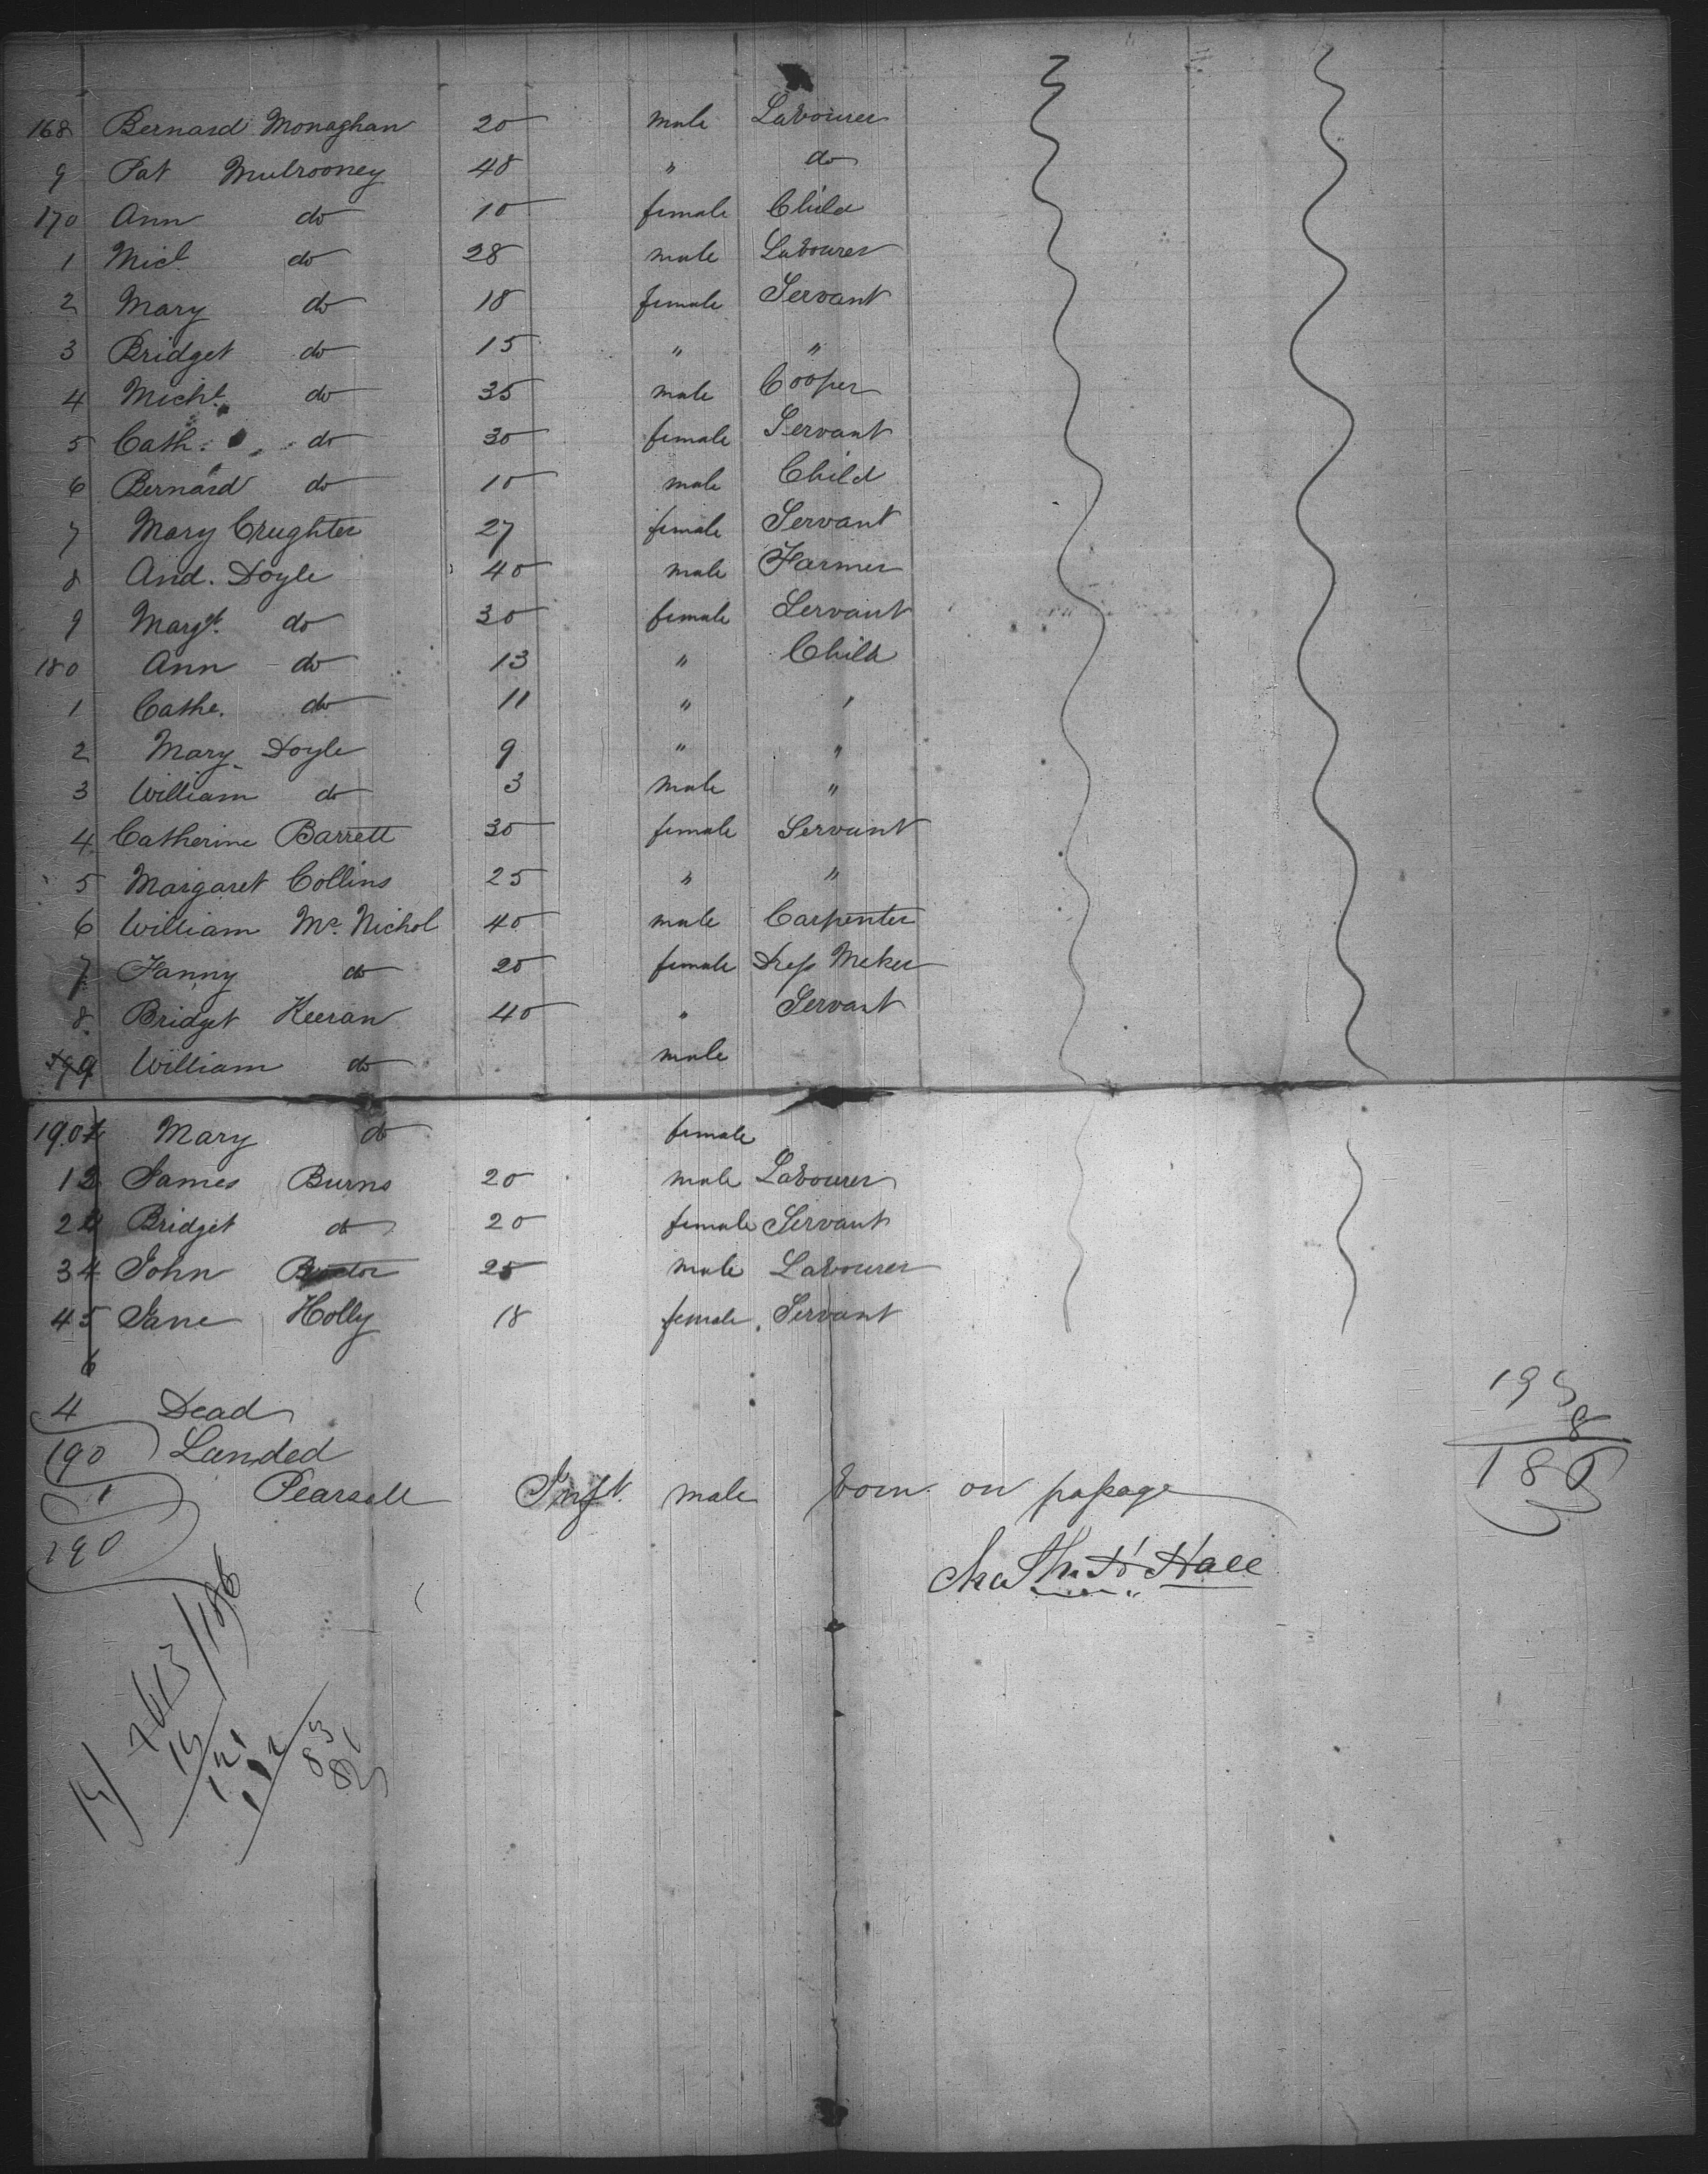 168 Bernard Monaghan 20 male Labourer
9 Pat Mulrooney 48 " do
170 Ann do 10 female Child
1 Michl do 28 male Labourer
2 Mary do 18 female Servant
3 Bridget do 15 " "
4 Michl. do 35 male Cooper
5 Cath: do 30 female Servant
6 Bernard do 10 male Child
7 Mary Crughter 27 female Servant
8 And. Doyle 40 male Farmer
9 Margt. do 30 female Servant
180 Ann do 13 " Child
1 Cathe. do 11 " "
2 Mary Doyle 9 " "
3 William do 3 male "
4 Catherine Barrett 30 female Servant
5 Margaret Collins 25 " "
6 William Mc. Nichol 40 male Carpenter
7 Fanny do 20 female Dress Maker
8 Bridget Keeran 40 " Servant
9 William do male
190 Mary do female
1 2 James Burns 20 male Labourer
2 Bridget do 20 female Servant
3 4 John 25 male Labourer
4 5 Jane Holly 18 female Servant
6
4 Dead
190 Landed
1 Pearsall Inft. male born on passage
190
Hall